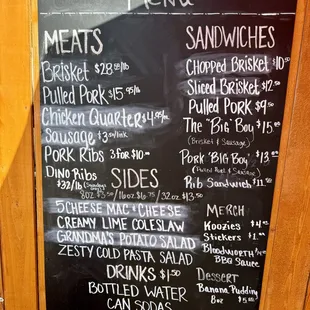 Menu
MEATS
Brisket $28/lb
Pulled Pork $15 95/lb
Chicken Quarter $4.95/ea
Sausage $3.50/link
PORK Ribs 3 FOR $10
DINO Ribs
$32/lb
SANDWICHES
CHOPPED Brisket $10
Sliced Brisket $12
Pulled PORK $9 50
THE "BIG" BOY $15
(Brisket & Sausage)
PORK "BIG BOY" $13
(Pulled Pork & Sausage)
Rib SANDWICH $11
SIDES
8oz $3.50/16oz $6.75/32oz $13.50
5 CHEESE MAC & CHEESE
CREAMY LIME COLESLAW
GRANDMA'S POTATO SALAD
ZESTY COLD PASTA SALAD
DRINKS $1.50
BOTTLED WATER
CAN SODAS
MERCH
Koozies $4
Stickers $1
Bloodworth
BBQ Sauce
Dessert
Banana Pudding
8oz $5